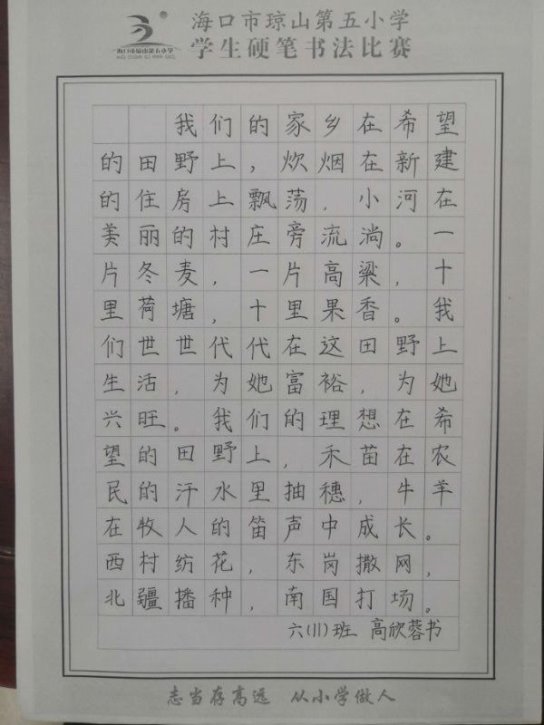 海口市琼山第五小学
学生硬笔书法比赛
海口市琼山第五小学
我们的家乡在希望
的田野上，炊烟在新建
的住房上飘荡，小河在
美丽的村庄旁流淌。一
片冬麦，一片高粱，十
里荷塘，十里果香。我
们世世代代在这田野上
生活，为她富裕，为她
兴旺。我们的理想在希
望的田野上，禾苗在农
民的汗水里抽穗，牛羊
在牧人的笛声中成长。
西村纺花，东岗撒网，
北疆播种，南国打场。
六(11)班 高欣蓉书
志当存高远 从小学做人